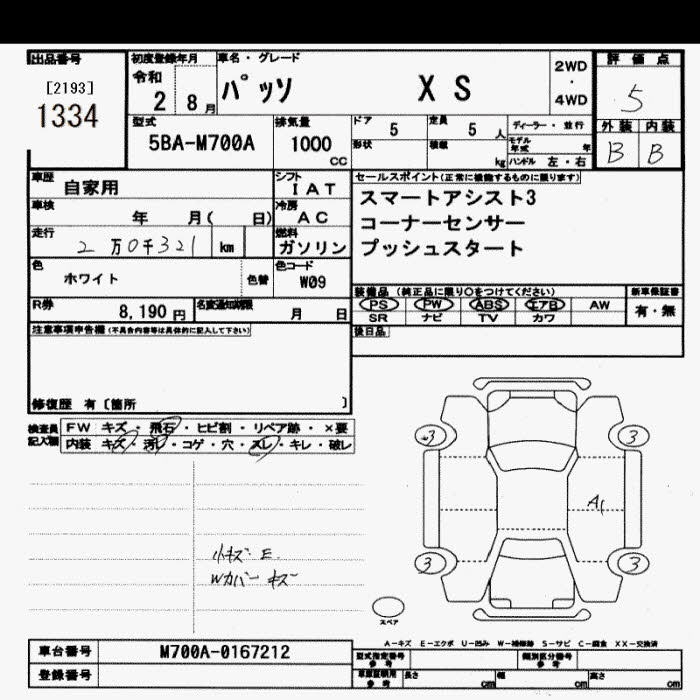 出品番号
[2193]
1334
初度登録年月
令和
2 8月
車名・グレード
パッソ X S
2WD
・
4WD
評価点
5
外装 内装
B B
型式
5BA-M700A
排気量
1000
CC
ドア 5
定員 5 人
形状
積載 kg
ディーラー・並行
モデル年式 年
ハンドル 左・右
車歴
自家用
シフト
I A T
車検
年 月( 日)
冷房
A C
走行
2 万 0 千 321 km
燃料
ガソリン
色
ホワイト
色替
色コード
W09
R券
8,190 円
名変通知期限
月 日
セールスポイント(正常に機能するものに限ります)
スマートアシスト3
コーナーセンサー
プッシュスタート
装備品 (純正品に限り○をつけてください)
PS PW ABS エアB AW
SR ナビ TV カワ
新車保証書
有・無
後日品
注意事項申告欄(不具合内容等は具体的に記入して下さい)
修復歴 有〔箇所 〕
検査員記入欄
FW キズ・飛石・ヒビ割・リペア跡・×要
内装 キズ・汚レ・コゲ・穴・スレ・キレ・破レ
小キズ E
Wカバー キズ
3 3
A1
3 3
スペア
A-キズ E-エクボ U-凹み W-補修跡 S-サビ C-腐食 XX-交換済
車台番号
M700A-0167212
登録番号
型式指定番号
参考
類別区分番号
参考
車庫証明用
参考
長さ cm
幅 cm
高さ cm